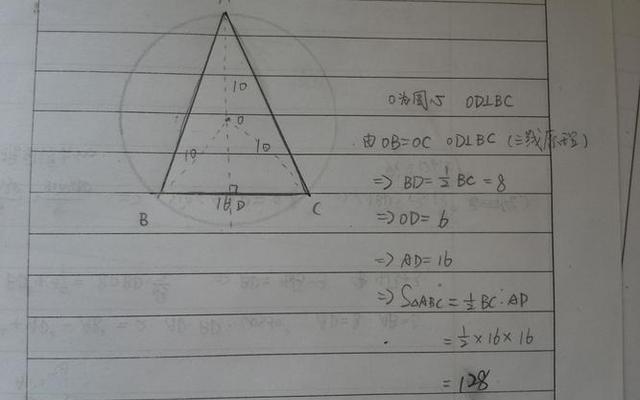 A
10
O
10
10
16
D
B
C
O为圆心 OD⊥BC
由OB=OC OD⊥BC (三线
=> BD=½BC=8
=> OD=6
=> AD=16
=> S△ABC=½BC·AD
=½×16×16
=128